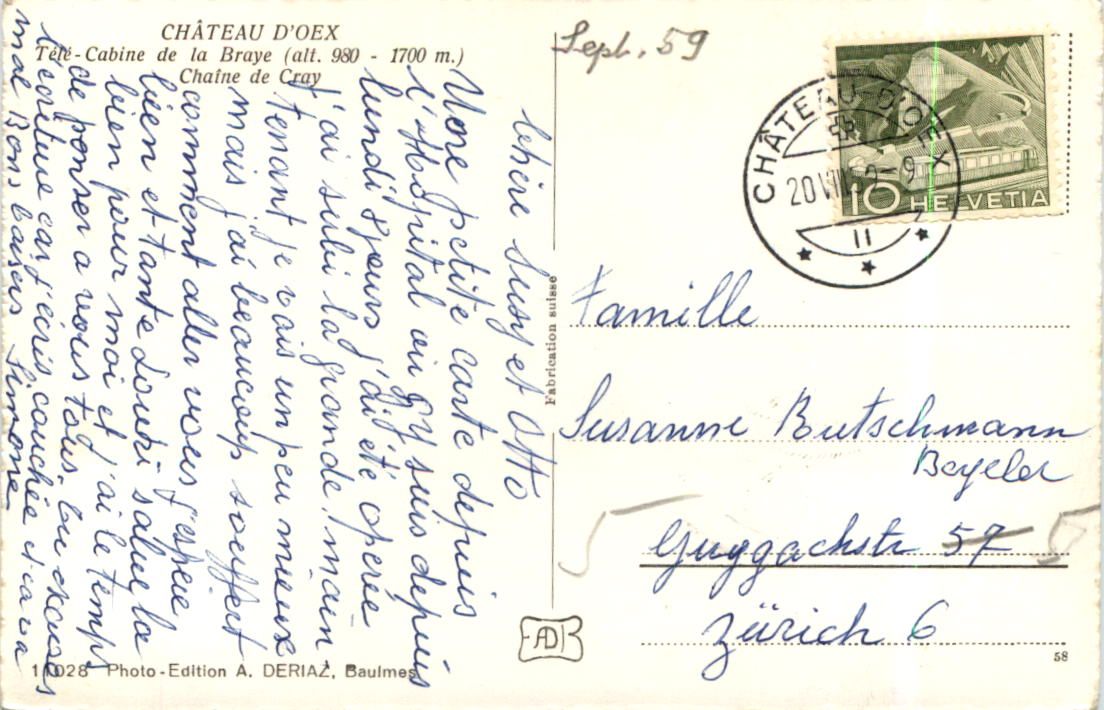 CHÂTEAU D'OEX
Télé-Cabine de la Braye (alt. 980 - 1700 m.)
Chaîne de Cray
Sept. 59
CHÂTEAU-D'OEX
20 VIII
II
10 HELVETIA
chère Susy et Otto
Une petite carte depuis
l'Hôpital où j'y suis depuis
lundi 8 jours, j'ai été opérée
j'ai subi la grande, main
tenant je vais un peu mieux
mais j'ai beaucoup souffert
comment aller vous j'espère
bien et tante Louisi salue la
bien pour moi et j'ai le temp
de penser a vous tous.
l'écriture car j'écris couchée et ça va
mal Bons baisers Simone
Fabrication suisse
Famille
Susanne Butschmann
Beyeler
Guggachstr 57 5
Zürich 6
5
AD
11028 Photo-Edition A. DERIAZ, Baulmes
58